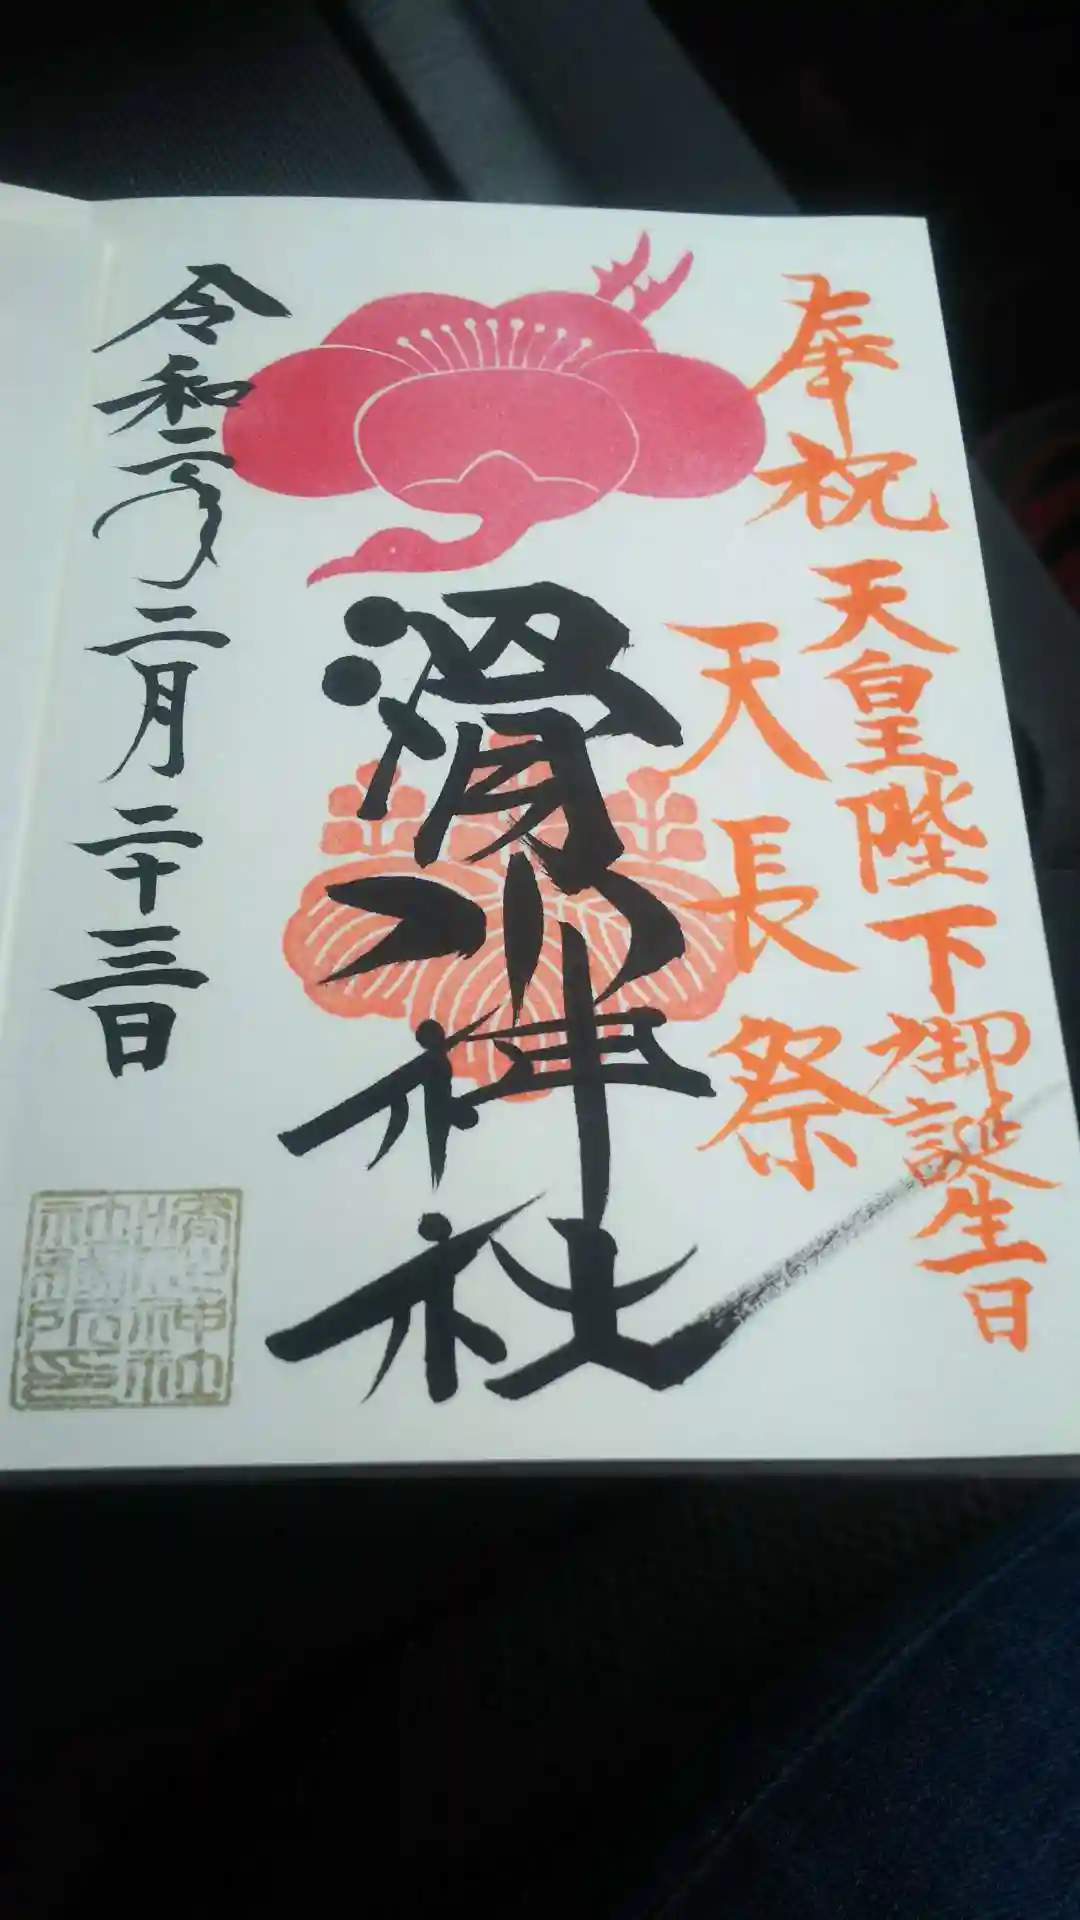 奉祝
天皇陛下御誕生日
天長祭
滑川神社
令和二年二月二十三日